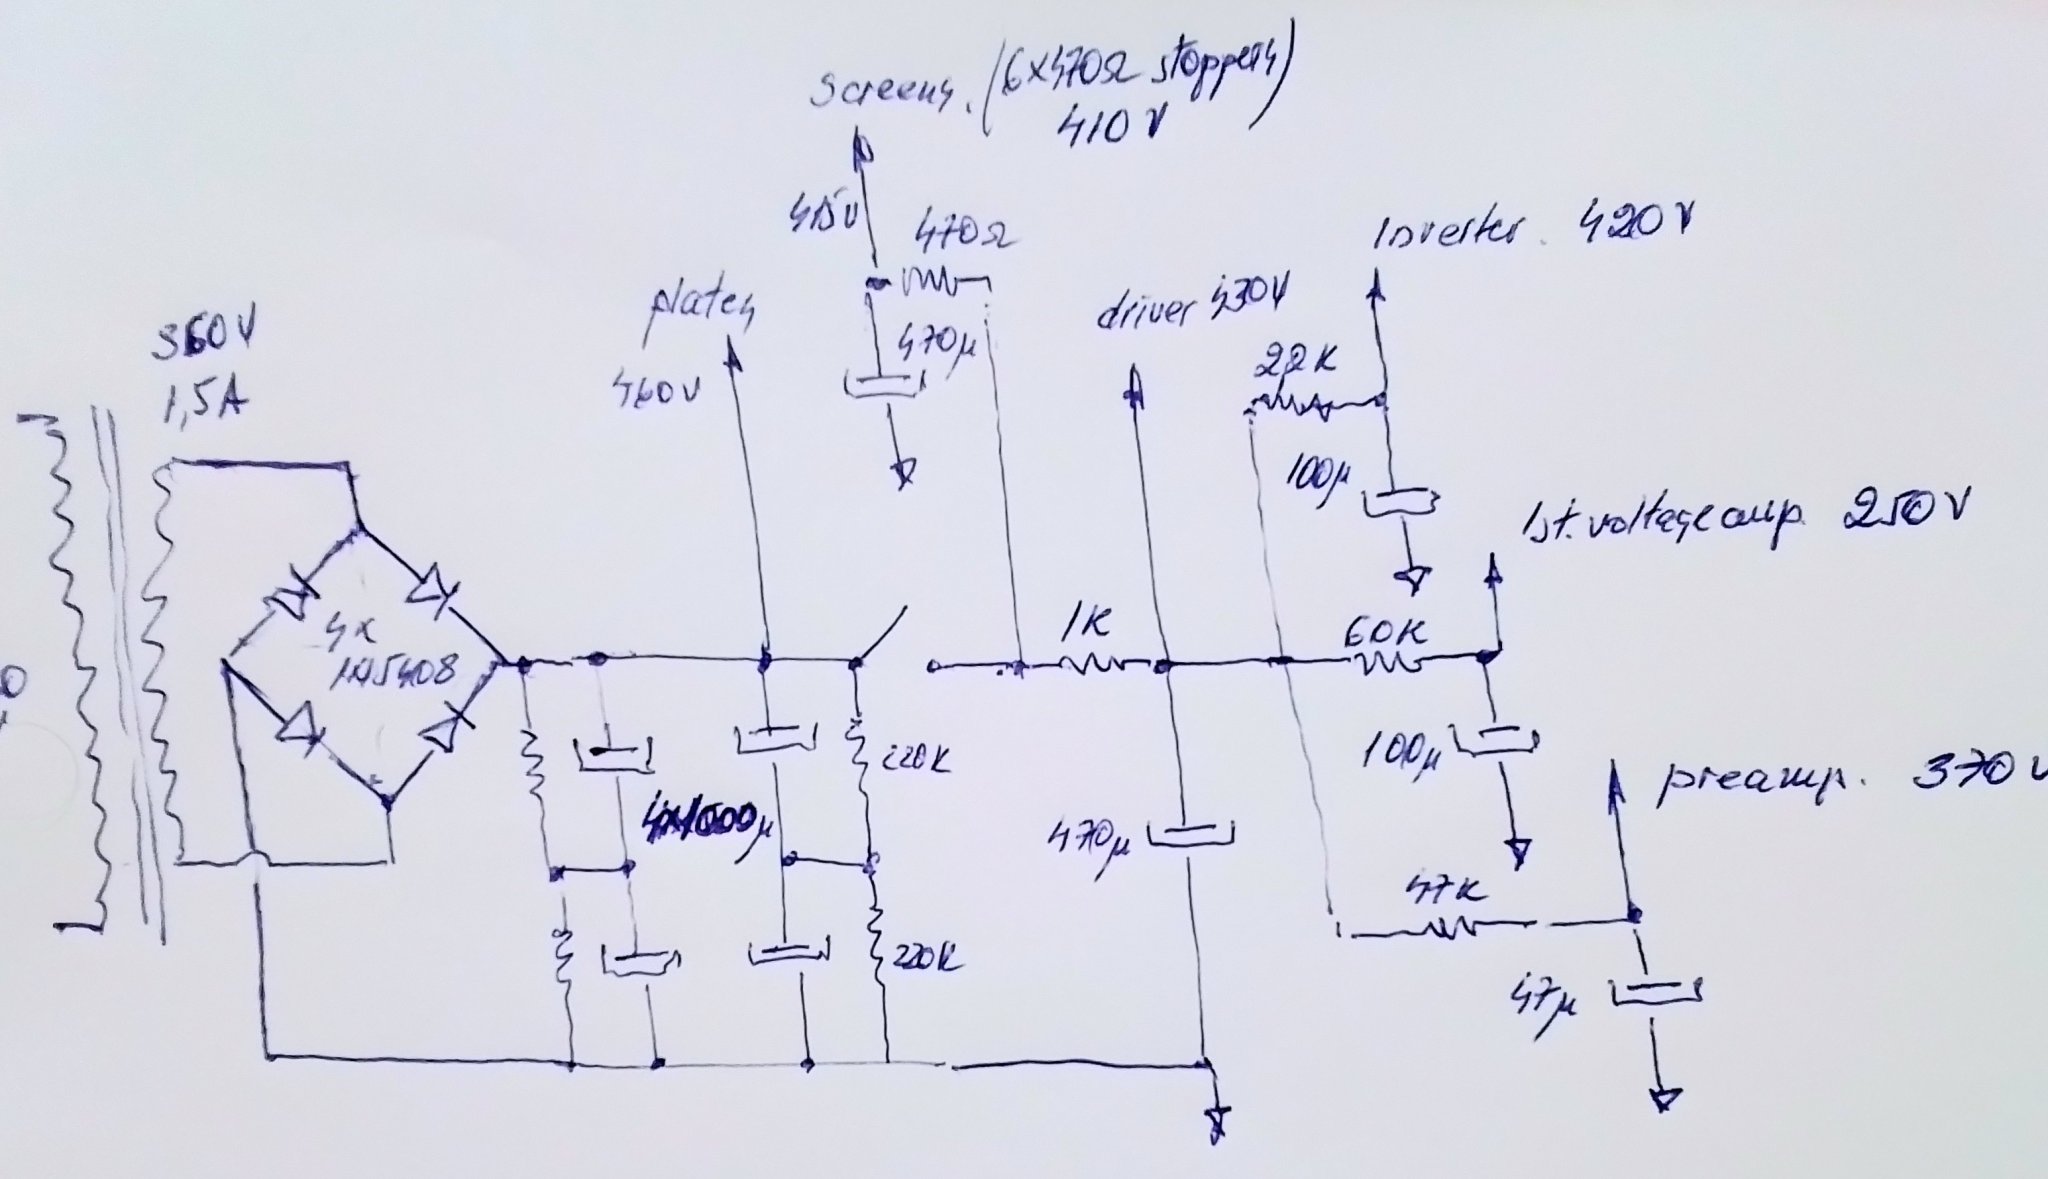 screens. (6x470Ω stoppers)
410V
415V
470Ω
Inverter. 420V
plates
driver 430V
360V
470µ
22K
460V
1,5A
100µ
1st. voltage amp. 250V
1K
60K
4x
1N5408
220K
100µ
preamp. 370V
4x1000µ
470µ
47K
220K
47µ